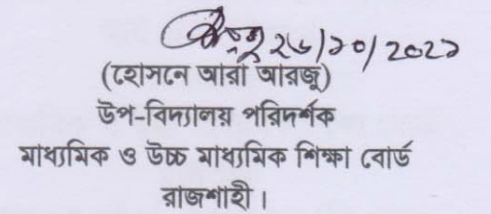 ২৬/১০/২০২১
(হোসনে আরা আরজু)
উপ-বিদ্যালয় পরিদর্শক
মাধ্যমিক ও উচ্চ মাধ্যমিক শিক্ষা বোর্ড
রাজশাহী।